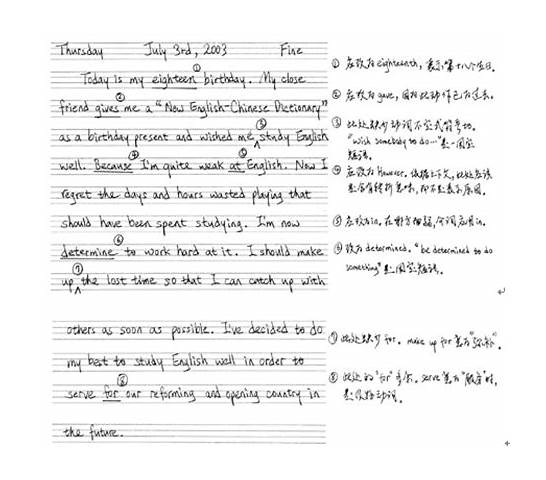 Thursday July 3rd, 2003 Fine
①
Today is my eighteen birthday. My close
②
friend gives me a "New English-Chinese Dictionary"
③
as a birthday present and wished me study English
④ ⑤
well. Because I'm quite weak at English. Now I
regret the days and hours wasted playing that
should have been spent studying. I'm now
⑥
determine to work hard at it. I should make
⑦
up the lost time so that I can catch up with
others as soon as possible. I've decided to do
my best to study English well in order to
⑧
serve for our reforming and opening country in
the future.
① 应改为 eighteenth, 表示第十八个生日.
② 应改为 gave, 因为此动作已为过去.
③ 此处缺少动词不定式符号 to.
"wish somebody to do…" 是一固定
短语.
④ 应改为 However. 依据上下文, 此处应该
是含有转折意味, 而不是表示原因.
⑤ 应改为 in.
⑥ 改为 determined. "be determined to do
something" 是一固定短语.
⑦ 此处缺少 for. make up for 意为"弥补".
⑧ 此处的 "for" 多余. serve 意为 时,
是及物动词.